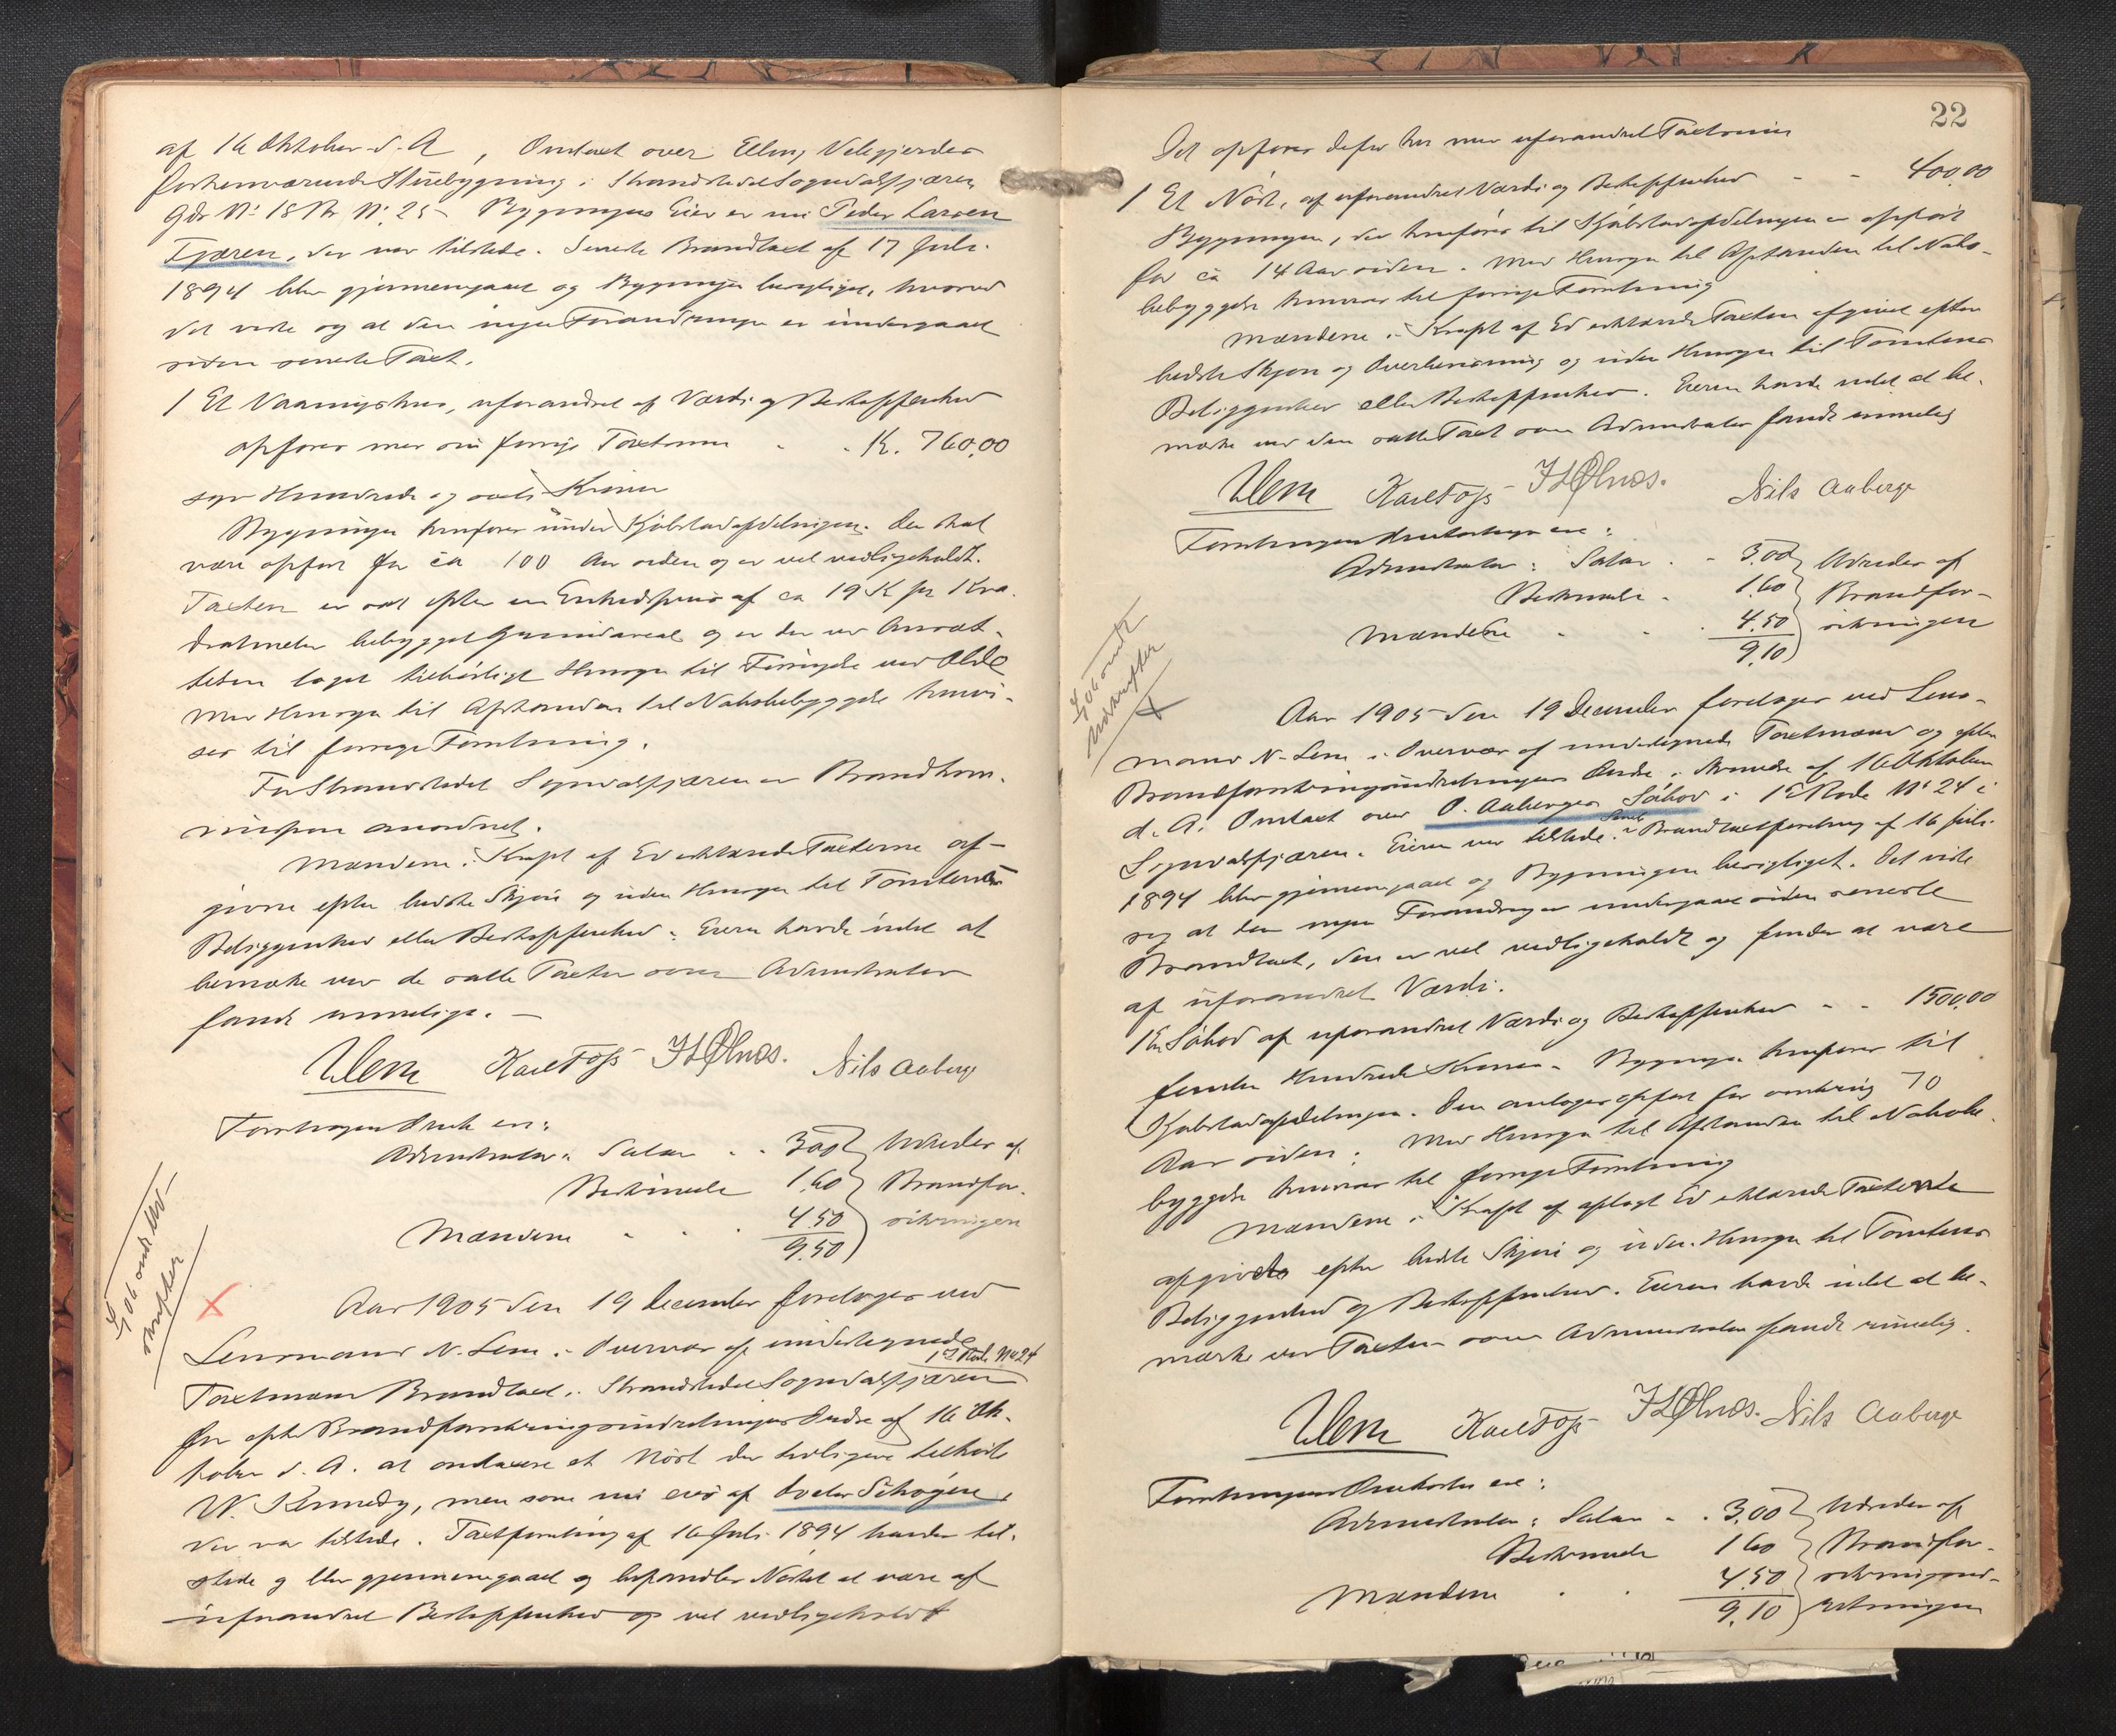 af 16 Oktober d. A, Omtaxt over Elling Vetegjerdes
forhenværende Stuebygning i Strandstedet Sogndalsfjæren
Gdr No 18 Br No 25. Bygningens Eier er nu Peder Larsen
Fjæren, der var tilstede. Seneste Brandtaxt af 17 Juli
1894 blev gjennemgaaet og Bygningen besigtiget, hvorved
det viste sig at den ingen Forandringer er undergaaet
siden seneste Taxt.
1 Et Vaaningshus, uforandret af Værdi og Beskaffenhed
opføres med sin forrige Taxtsum - - K. 760,00
syv Hundrede og seksti Kroner
Bygningen henføres under Kjøbstadafdelingen. Den skal
være opført for ca 100 Aar siden og er vel vedligeholdt.
Taxten er sat efter en Enhedspris af ca 19 K pr Kva-
dratmeter bebygget Grundareal og er der ved Ansæt-
telsen taget tilbørligt Hensyn til Forringelse ved Ælde
Med Hensyn til Afstanden til Nabobebyggelse henvi-
ses til forrige Forretning.
For Strandstedet Sogndalsfjæren er Brandkom-
mission anordnet.
Mændene i Kraft af Ed erklærede Taxterne af-
givne efter bedste Skjøn og uden Hensyn til Tomternes
Beliggenhed eller Beskaffenhed. Eieren havde intet at
bemærke ved de satte Taxter som Administrator
fandt rimelige. -
NLem Karl Foss J L Ølnes. Nils Aaberge
Forretningen Omk. er:
Administrator: Salær . . 3,00 } Udredes af
Befordring 1,60 } Brandfor-
Mændene - . . 4.50 } sikringen
9.50
Gjort omtk. Ud-
skrifter
X
Aar 1905 den 19 December foretoges ved
Lensmand N. Lem i Overvær af undertegnede
1ste Rode No 24
Taxtmænd Brandtaxt i Strandstedet Sogndalsfjæren
for efter Brandforsikringsindretningens Ordre af 16 Ok-
tober d. A. at omtaxere et Nøst der tidligere tilhørte
W. Kennedy, men som nu eies af
der var tilstede. Taxtforretning af 16 Juli 1894 havdes til-
stede og blev gjennemgaaet og befandtes Nøstet at være af
uforandret Beskaffenhed og vel vedligeholdt
22
Det opføres derfor her med uforandret Taxtsum
1 Et Nøst, af uforandret Værdi og Beskaffenhed - - 400,00
Bygningen, der henføres til Kjøbstadafdelingen er opført
for ca 14 Aar siden. Med Hensyn til Afstanden til Nabo-
bebyggelse henvises til forrige Forretning
Mændene i Kraft af Ed erklærede Taxten afgivet efter
bedste Skjøn og Overbevisning og uden Hensyn til Tomtens
Beliggenhed eller Beskaffenhed. Eieren havde intet at be-
mærke ved den satte Taxt som Administrator fandt rimelig
NLem Karl Foss J L Ølnes. Nils Aaberge
Forretningens Omkostninger ere:
Administrator: Salær . - 3.00 } Udredes af
Befordring - 1.60 } Brandfor-
Mændene - - . 4.50 } sikringen
9.10
Gjort omtk
Udskrifter
X
Aar 1905 den 19 December foretoges ved Lens-
mand N. Lem i Overvær af undertegnede Taxtmænd og efter
Brandforsikringsindretningens Ordre i Skrivelse af 16 Oktober
d. A. Omtaxt over O. Aaberges Søbod i 1ste Rode No 24 i
Sogndalsfjæren. Eieren var tilstede. Seneste Brandtaxtforretning af 16 Juli
1894 blev gjennemgaaet og Bygningen besigtiget. Det viste
sig at den ingen Forandringer undergaaet siden seneste
Brandtaxt, den er vel vedligeholdt og findes at være
af uforandret Værdi.
1 En Søbod af uforandret Værdi og Beskaffenhed - - 1500,00
femten Hundrede Kroner. Bygningen henføres til
Kjøbstadafdelingen. Den antages opført for omkring 70
Aar siden. Med Hensyn til Afstanden til Nabobe-
byggelse henvises til forrige Forretning
Mændene i Kraft af aflagt Ed erklærede Taxten
afgivet efter bedste Skjøn og uden Hensyn til Tomtens
Beliggenhed og Beskaffenhed. Eieren havde intet at be-
mærke ved Taxten som Administrator fandt rimelig.
NLem Karl Foss J L Ølnes. Nils Aaberge
Forretningens Omkostn. ere:
Administrator: Salær - . 3,00 } Udredes af
Befordring 1 60 } Brandfor-
Mændene . . 4.50 } sikringsind-
9.10 } retningen